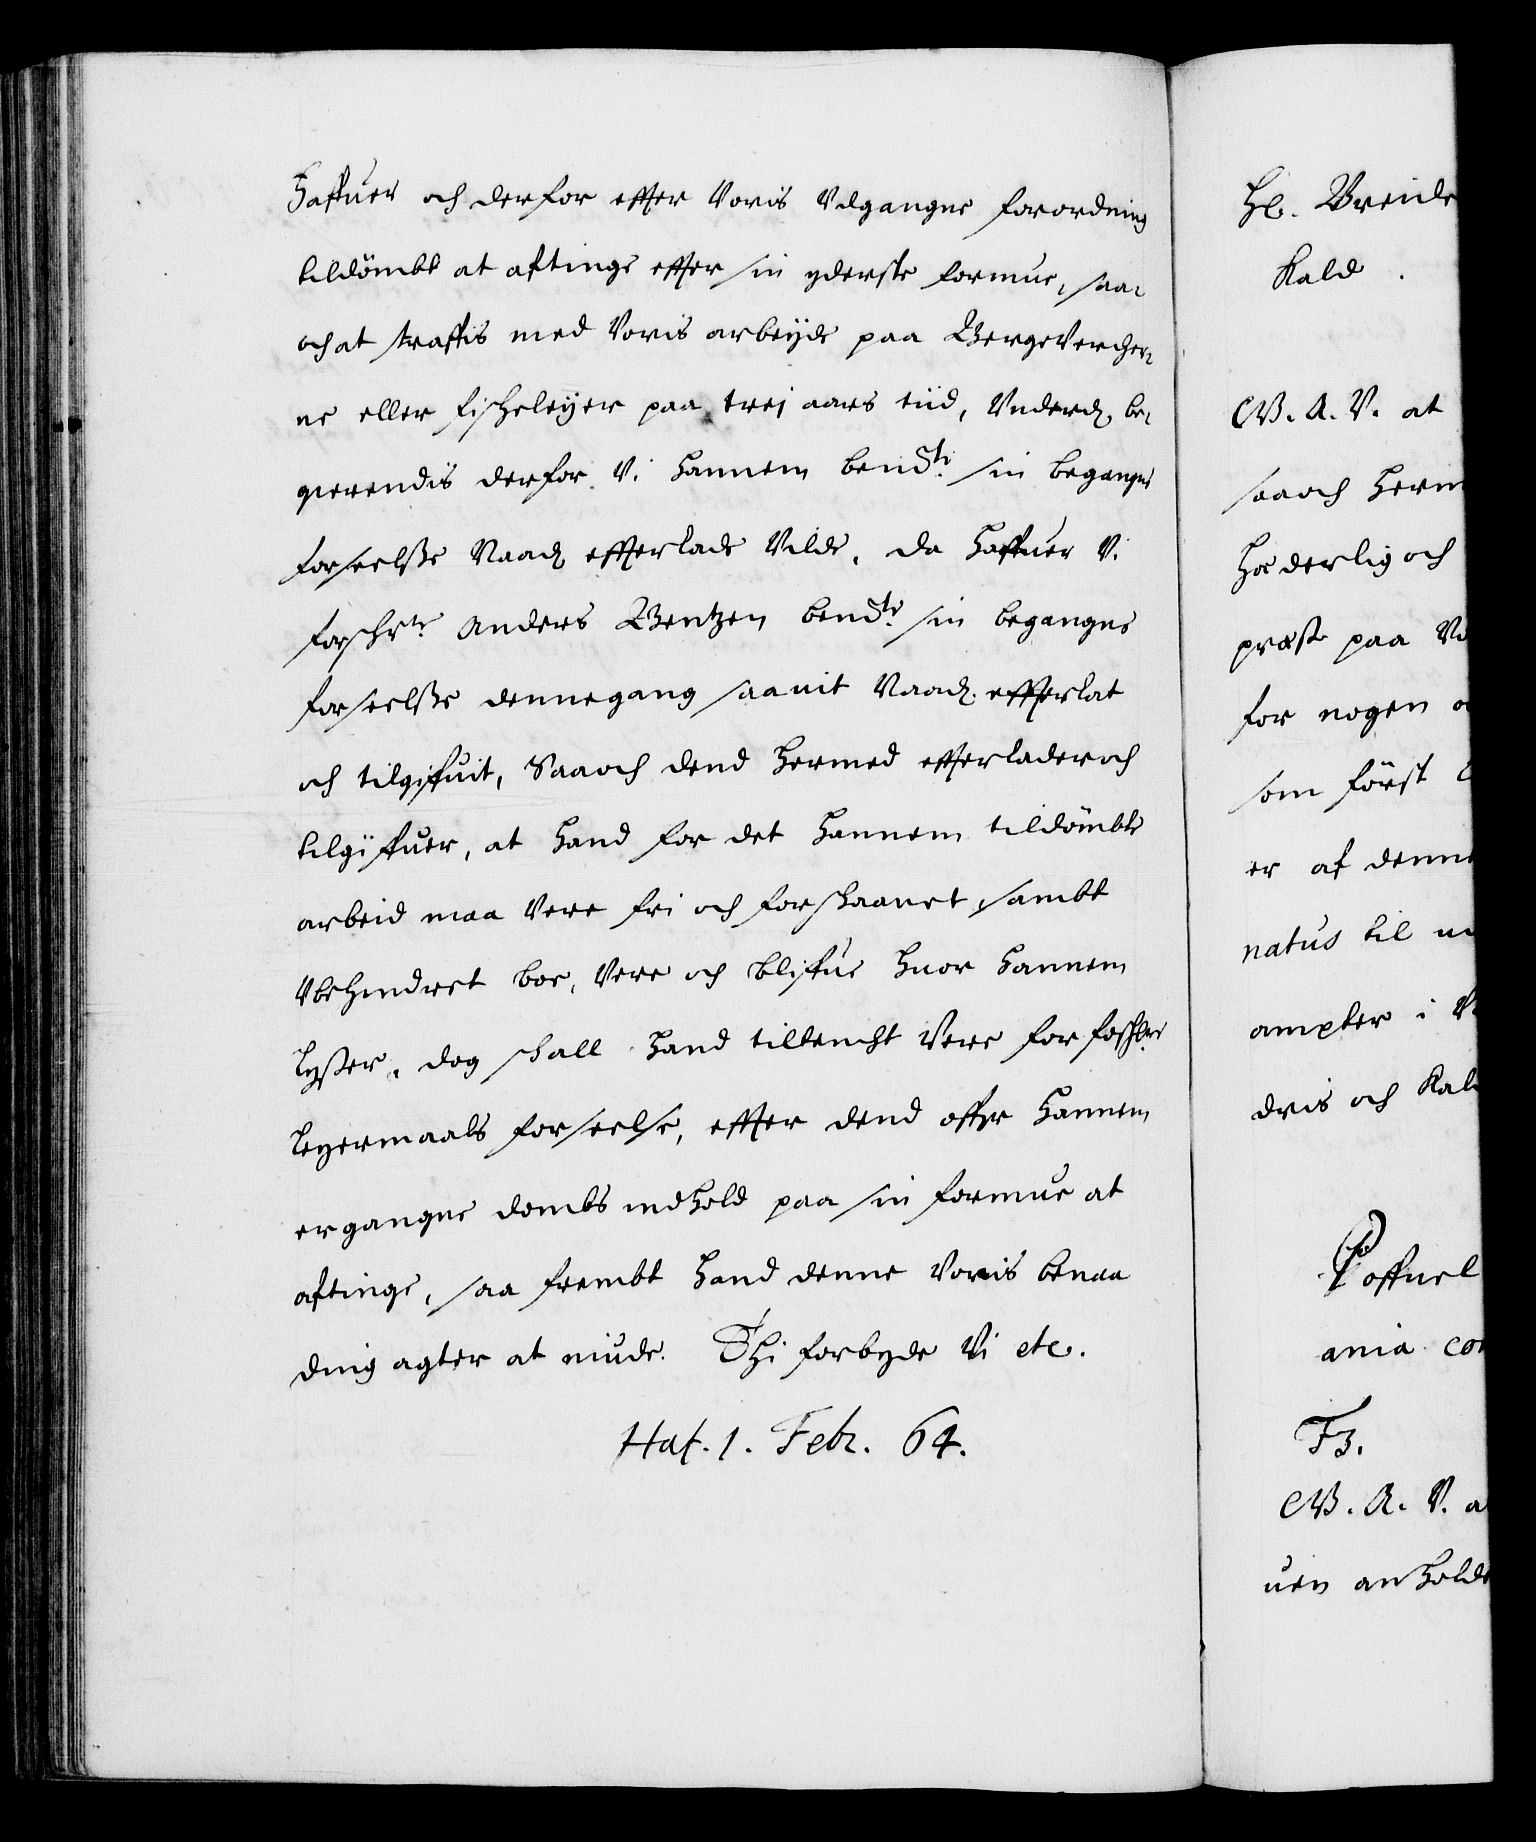 Haffuer och derfor effter Voris Udgangne forordning
tildömbt at affinge effter sin yderste formue, saa-
och at straffis med Voris arbeyde paa Bergevercher-
ne eller Fischeleyer paa trej aars tiid, Underd. be-
gierendis derfor Vi hannem bendte sin begangne
forseelsse Naad. effterlade Vilde, da haffuer Vi
forschrne Anders Bentzen bendte sin begangne
forseelsse dennegang saauit Naad. effterlat
och tilgiffuit, Saaoch dend hermed effterlader och
tilgiffuer, at hand for det hannem tildömbte
arbeid maa Vere fri och forskaanet, sambt
Ubehindret boe, Vere och bliffue huor hannem
lyster, dog skall hand tiltencht Vere for
Leyermaals forseelse, effter dend offr hannem
ergangne dombs indhold paa sin formue at
affinge, saa frembt hand denne Voris benaa
ding agter at niude. Thi forbyde Vi etc.
Haf. 1. Febr. 64.
Hr. Breide
Kald.
C.V.B. A. V. at
saaoch herm
Hæderlig och
præst paa
for nogen
som först
er af denne
natus til
ampter i
dris och Kal
ania con
F3.
C.V.B. A. V. a
uen anholde